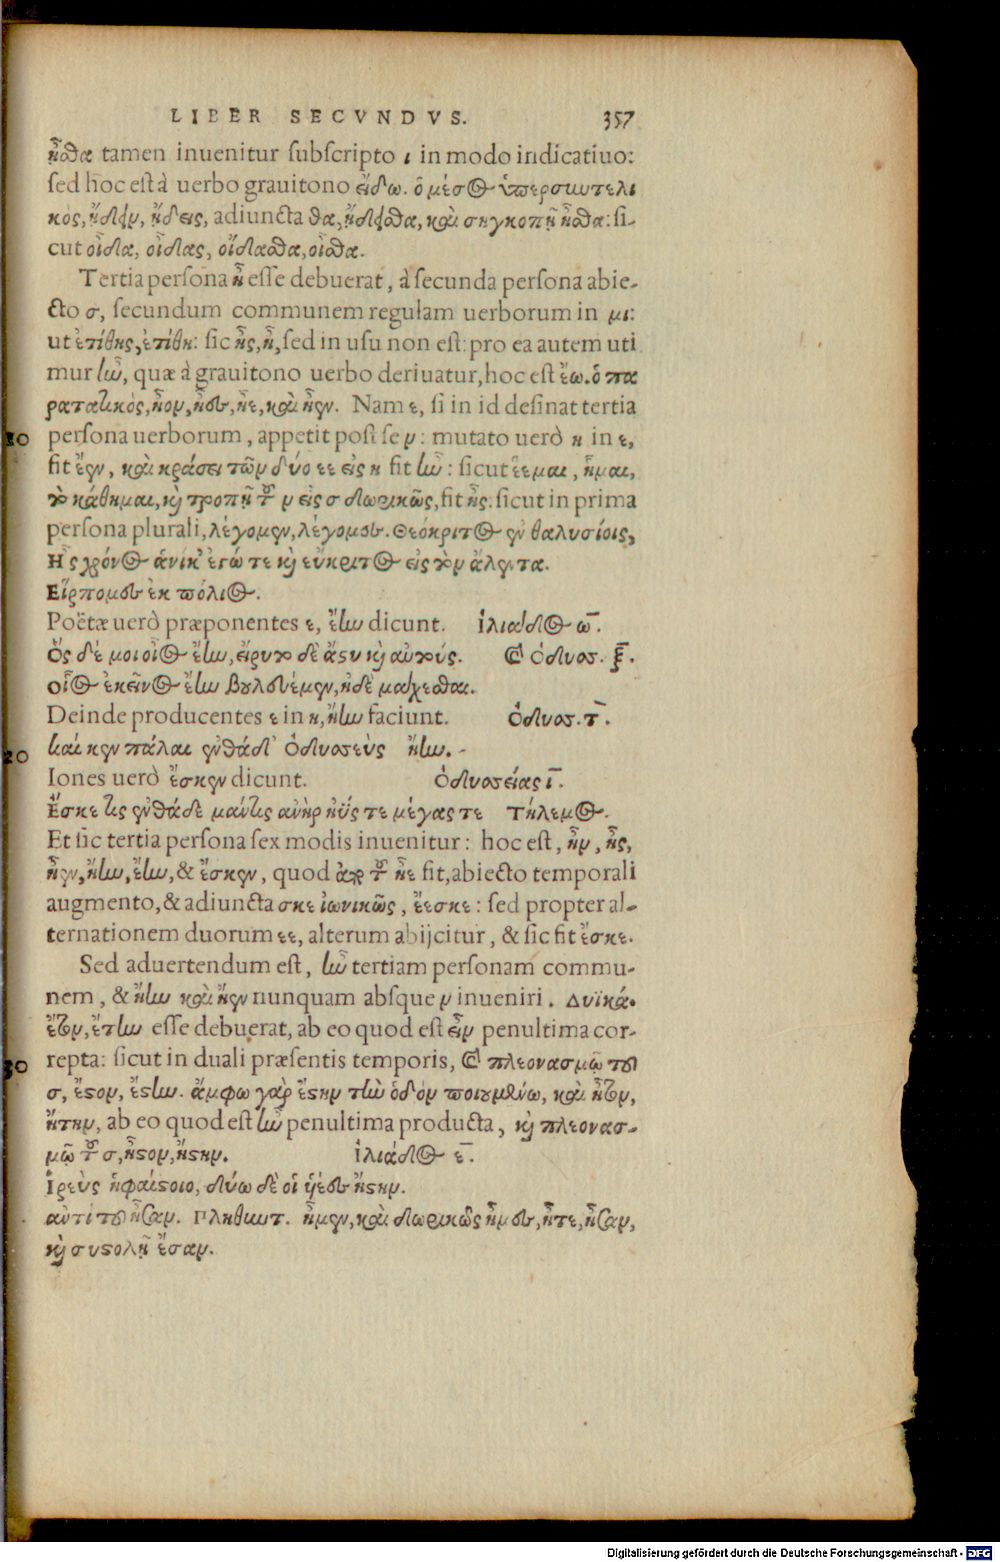 LIBER SECVNDVS. 357
ᾖσθα tamen inuenitur subscripto ι in modo indicatiuo:
sed hoc est à uerbo grauitono εἴδω. ὁ μέσος ὑπερσυντελι
κὸς, ᾔδειν, ᾔδεις, adiuncta θα, ᾔδεισθα, καὶ συγκοπῇ ᾖσθα: si-
cut οἶδα, οἶδας, οἴδασθα, οἶσθα.
Tertia persona ἦ esse debuerat, à secunda persona abie-
cto σ, secundum communem regulam uerborum in μι:
ut ἐτίθης, ἐτίθη: sic ἦς, ἦ, sed in usu non est: pro ea autem uti
mur ἦν, quæ à grauitono uerbo deriuatur, hoc est ἔω. ὁ πα
ρατατικὸς, ἦον, ἦες, ἦε, καὶ ἦεν. Nam ε, si in id desinat tertia
10 persona uerborum, appetit post se ν: mutato uerò η in ε,
fit ἔεν, καὶ κράσει τῶν δύο εε εἰς η fit ἦν: sicut ἕεμαι, ἧμαι,
τὸ κάθημαι, καὶ τροπῇ τοῦ ν εἰς σ δωρικῶς, fit ἦς. sicut in prima
persona plurali, λέγομεν, λέγομες. Θεόκριτος ἐν θαλυσίοις,
Ἦς χρόνος ἁνίκ' ἐγώ τε καὶ εὔκριτος εἰς τὸν ἄλεντα.
Εἵρπομες ἐκ πόλιος.
Poëtæ uerò præponentes ε, ἔην dicunt. ἰλιάδος ω̅.
Ὅς δέ μοι οἶος ἔην, εἴρυτο δὲ ἄστυ καὶ αὐτούς. Et ὀδυσ. ξ̅.
οἷος ἐκεῖνος ἔην βουλευέμεν, ἠδὲ μάχεσθαι.
Deinde producentes ε in η, ἤην faciunt. ὀδυσ. τ̅.
20 καί κεν πάλαι ἐνθάδ' ὀδυσσεὺς ἤην.
Iones uerò ἔσκεν dicunt. ὀδυσσείας ι̅.
Ἔσκε τις ἐνθάδε μάντις ἀνὴρ ἠΰς τε μέγας τε Τήλεμος.
Et sic tertia persona sex modis inuenitur: hoc est, ἦν, ἦς,
ἦεν, ἤην, ἔην, & ἔσκεν, quod ἀπὸ τοῦ ἦε fit, abiecto temporali
augmento, & adiuncta σκε ἰωνικῶς, ἔεσκε: sed propter al-
ternationem duorum εε, alterum abijcitur, & sic fit ἔσκε.
Sed aduertendum est, ἦν tertiam personam commu-
nem, & ἤην καὶ ἦεν nunquam absque ν inueniri. Δυϊκά.
ἔτον, ἔτην esse debuerat, ab eo quod est εἶν penultima cor-
30 repta: sicut in duali præsentis temporis, Et πλεονασμῷ τοῦ
σ, ἔστον, ἔστην. ἄμφω γὰρ ἔστην τὴν ὁδὸν ποιουμένω, καὶ ἦτον,
ἤτην, ab eo quod est ἦν penultima producta, καὶ πλεονασ-
μῷ τοῦ σ, ἦστον, ἤστην. ἰλιάδος ε̅.
Ἱρεὺς ἡφαίστοιο, δύω δὲ οἱ υἱέες ἤστην.
αὐτὶ τοῦ ἦσαν. Πληθωντ. ἦμεν, καὶ δωρικῶς ἦμες, ἦτε, ἦσαν,
καὶ συστολῇ ἔσαν.
Digitalisierung gefördert durch die Deutsche Forschungsgemeinschaft - DFG